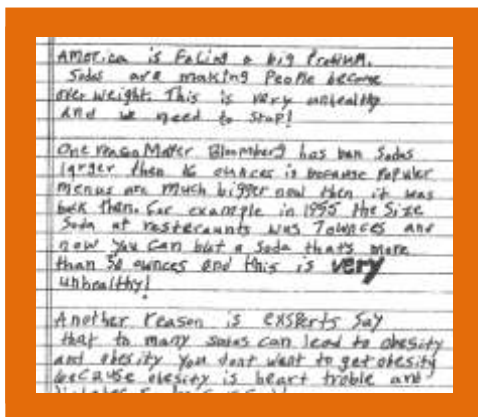 America is facing a big Problem.
Sodas are making People become
over weight. This is very unhealthy
And we need to stop!
One reason Bloomberg has ban Sodas
larger then 16 ounces is because Populer
menus are much bigger now then it was
back then. for example in 1955 the size
Soda at resteraunts was 7 ounces and
now you can but a soda that's more
than 50 ounces and this is very
unhealthy!
Another reason is exsperts Say
that to many sodas can lead to obesity
and obesity you dont want to get obesity
because obesity is heart troble and